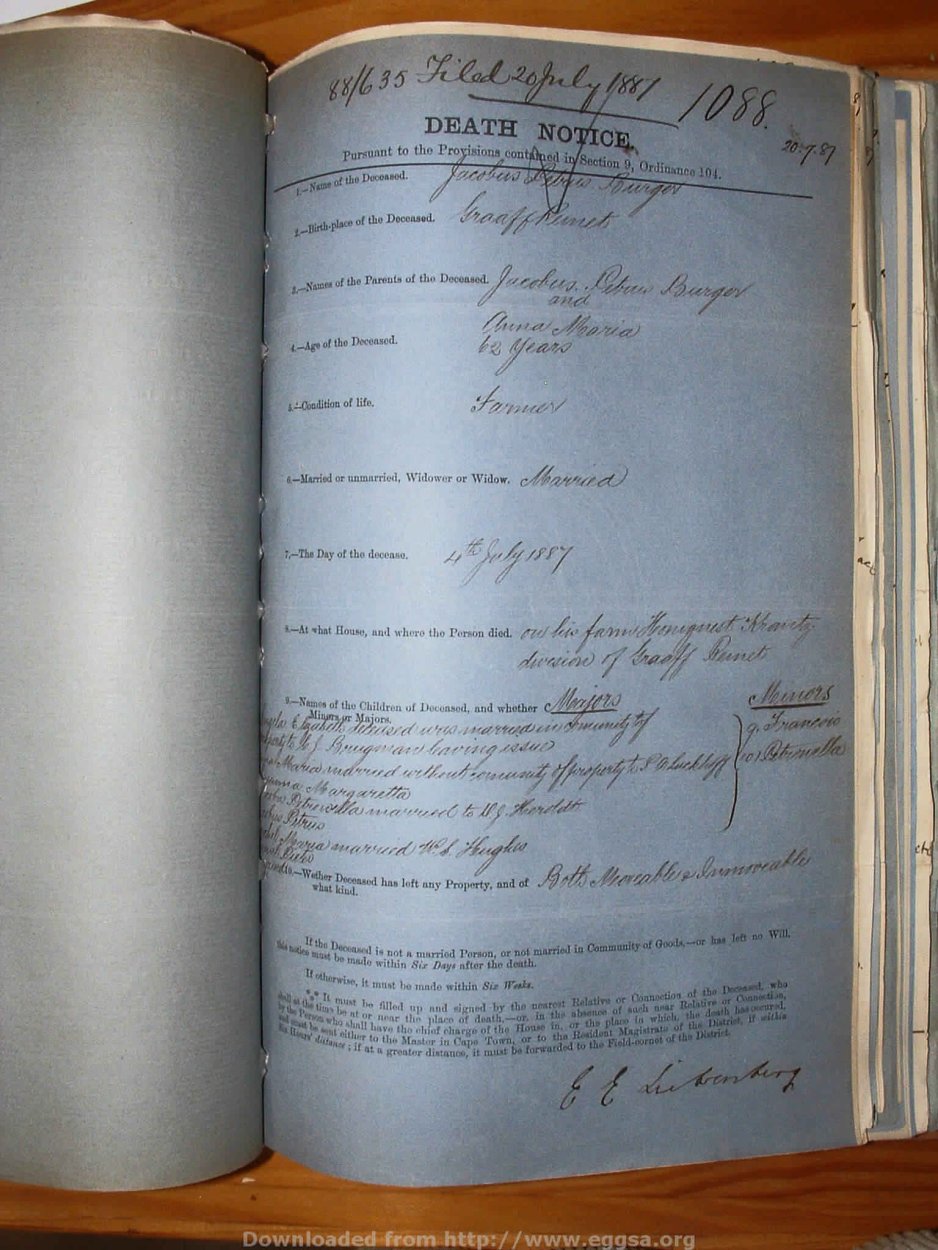 88/635 Filed 20 July 1887 1088.
20.7.87
DEATH NOTICE,
Pursuant to the Provisions contained in Section 9, Ordinance 104.
1.—Name of the Deceased. Jacobus Petrus Burger
2.—Birth-place of the Deceased. Graaff Reinet
3.—Names of the Parents of the Deceased. Jacobus Petrus Burger
and
Anna Maria
4.—Age of the Deceased. 62 Years
5.—Condition of life. Farmer
6.—Married or unmarried, Widower or Widow. Married
7.—The Day of the decease. 4th July 1887
8.—At what House, and where the Person died. on his farm Honignest Krantz
division of Graaff Reinet
9.—Names of the Children of Deceased, and whether Majors Minors
Minors or Majors.
Elizabeth deceased was married in community of 9. Francois
to W. J. Brugman leaving issue 10 Petronella
Maria married without community of property to P. A. Luckhoff
Margaretta
Petronella married to W. J. Heroldt
Petrus
Maria married W. S. Hughes
Pieter
10.—Wether Deceased has left any Property, and of Both Moveable & Immoveable
what kind.
If the Deceased is not a married Person, or not married in Community of Goods,—or has left no Will,
this notice must be made within Six Days after the death.
If otherwise, it must be made within Six Weeks.
*** It must be filled up and signed by the nearest Relative or Connection of the Deceased, who
shall at the time be at or near the place of death,—or, in the absence of such near Relative or Connection,
by the Person who shall have the chief charge of the House in, or the place in which, the death has occured,
and must be sent either to the Master in Cape Town, or to the Resident Magistrate of the District, if within
Six Hours' distance; if at a greater distance, it must be forwarded to the Field-cornet of the District.
E E Liebenberg
Downloaded from http://www.eggsa.org